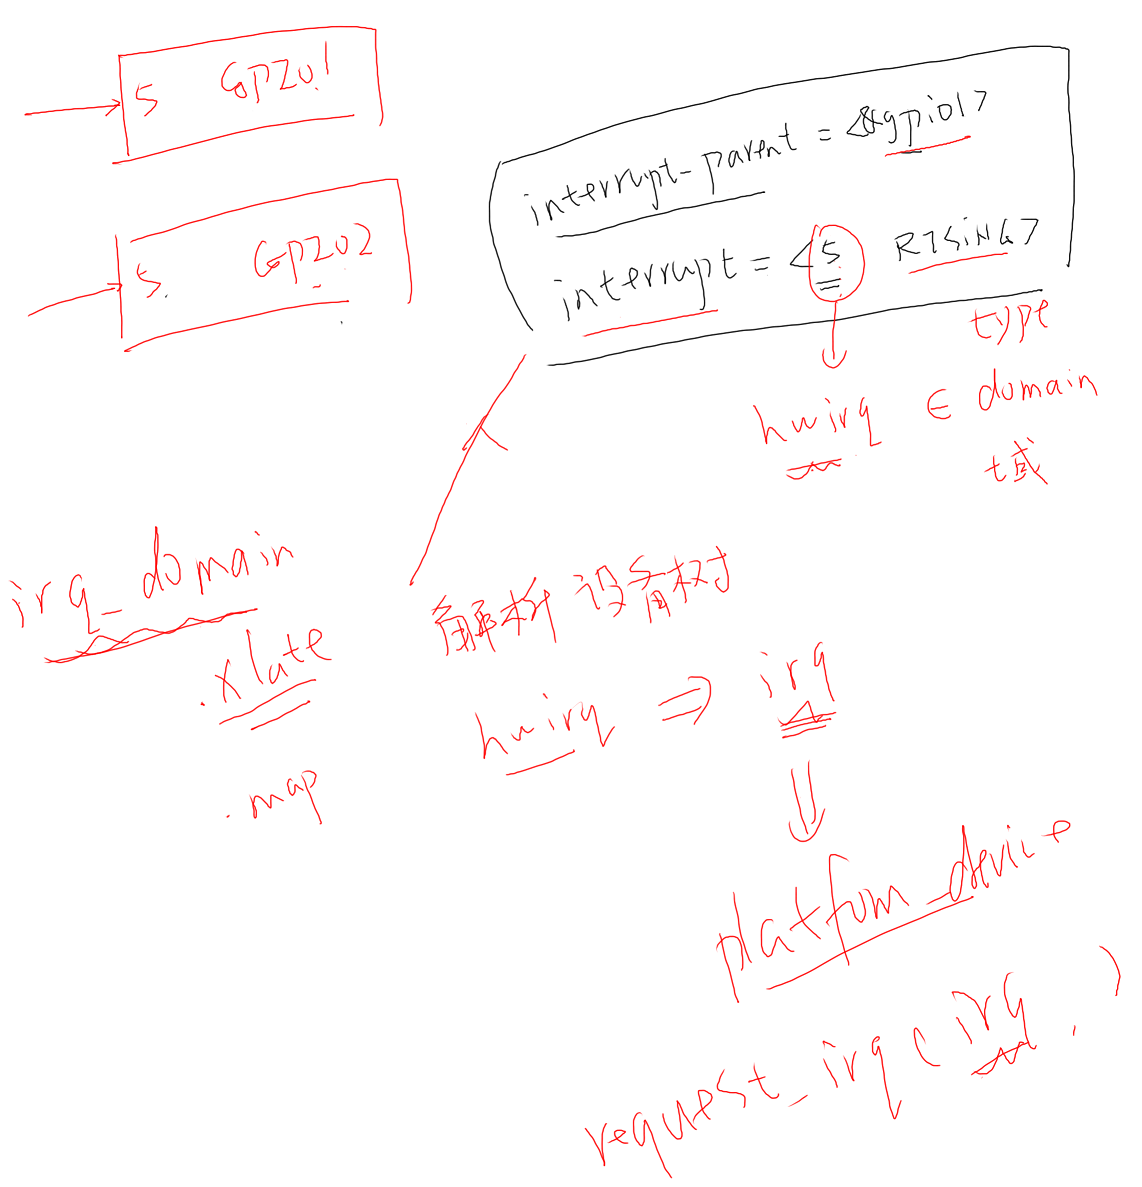 5 GPIO1
5 GPIO2
interrupt-parent = <&gpio1>
interrupt = <5 RISING>
type
hwirq ∈ domain
域
irq_domain
.xlate
.map
解析设备树
hwirq ⇒ irq
platfom_device
request_irq(irq, )